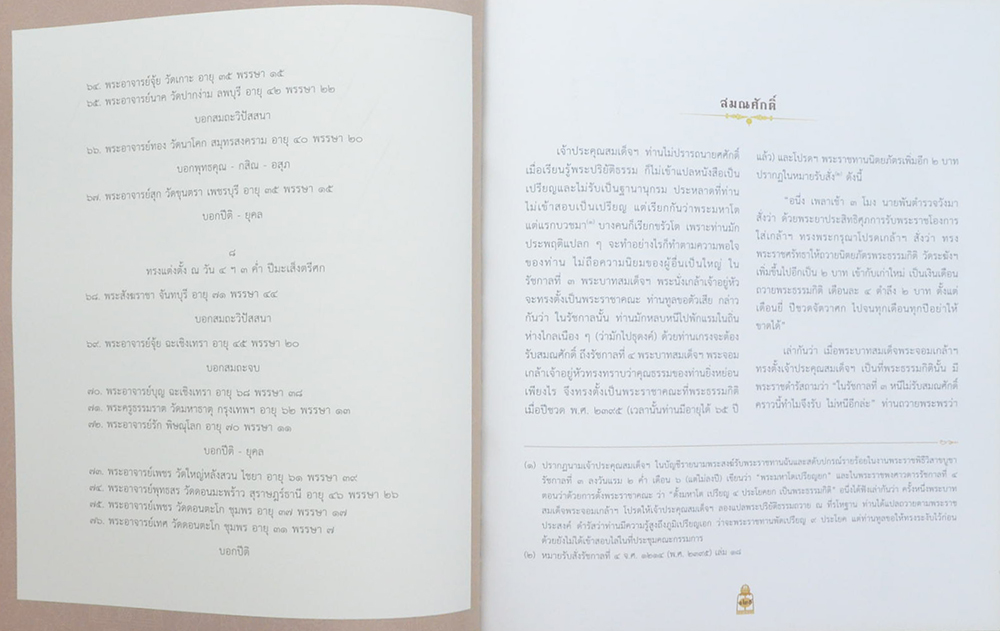 ๖๔. พระอาจารย์จุ้ย วัดเกาะ อายุ ๓๕ พรรษา ๑๕
๖๕. พระอาจารย์นาค วัดปากง่าม ลพบุรี อายุ ๔๒ พรรษา ๒๒
บอกสมถะวิปัสสนา
๖๖. พระอาจารย์ทอง วัดนาโคก สมุทรสงคราม อายุ ๔๐ พรรษา ๒๐
บอกพุทธคุณ - กสิณ - อสุภ
๖๗. พระอาจารย์สุก วัดขุนตรา เพชรบุรี อายุ ๓๕ พรรษา ๑๕
บอกปีติ - ยุคล
๘
ทรงแต่งตั้ง ณ วัน ๔ ฯ ๓ ค่ำ ปีมะเส็งตรีศก
๖๘. พระสังฆราชา จันทบุรี อายุ ๗๑ พรรษา ๔๔
บอกสมถะวิปัสสนา
๖๙. พระอาจารย์จุ้ย ฉะเชิงเทรา อายุ ๔๕ พรรษา ๒๐
บอกสมถะจบ
๗๐. พระอาจารย์บุญ ฉะเชิงเทรา อายุ ๖๘ พรรษา ๓๘
๗๑. พระครูธรรมราต วัดมหาธาตุ กรุงเทพฯ อายุ ๖๒ พรรษา ๑๓
๗๒. พระอาจารย์รัก พิษณุโลก อายุ ๗๐ พรรษา ๑๑
บอกปีติ - ยุคล
๗๓. พระอาจารย์เพชร วัดใหญ่หลังสวน ไชยา อายุ ๖๑ พรรษา ๓๙
๗๔. พระอาจารย์พุทธสร วัดดอนมะพร้าว สุราษฎร์ธานี อายุ ๔๖ พรรษา ๒๖
๗๕. พระอาจารย์เพชร วัดดอนตะโก ชุมพร อายุ ๓๗ พรรษา ๑๗
๗๖. พระอาจารย์เทศ วัดดอนตะโก ชุมพร อายุ ๓๑ พรรษา ๗
บอกปีติ
สมณศักดิ์
เจ้าประคุณสมเด็จฯ ท่านไม่ปรารถนายศศักดิ์
เมื่อเรียนรู้พระปริยัติธรรม ก็ไม่เข้าแปลหนังสือเป็น
เปรียญและไม่รับเป็นฐานานุกรม ประหลาดที่ท่าน
ไม่เข้าสอบเป็นเปรียญ แต่เรียกกันว่าพระมหาโต
แต่แรกบวชมา(๑) บางคนก็เรียกขรัวโต เพราะท่านมัก
ประพฤติแปลก ๆ จะทำอย่างไรก็ทำตามความพอใจ
ของท่าน ไม่ถือความนิยมของผู้อื่นเป็นใหญ่ ใน
รัชกาลที่ ๓ พระบาทสมเด็จฯ พระนั่งเกล้าเจ้าอยู่หัว
จะทรงตั้งเป็นพระราชาคณะ ท่านทูลขอตัวเสีย กล่าว
กันว่า ในรัชกาลนั้น ท่านมักหลบหนีไปพักแรมในถิ่น
ห่างไกลเนือง ๆ (ว่ามักไปธุดงค์) ด้วยท่านเกรงจะต้อง
รับสมณศักดิ์ ถึงรัชกาลที่ ๔ พระบาทสมเด็จฯ พระจอม
เกล้าเจ้าอยู่หัวทรงทราบว่าคุณธรรมของท่านยิ่งหย่อน
เพียงไร จึงทรงตั้งเป็นพระราชาคณะที่พระธรรมกิติ
เมื่อปีชวด พ.ศ. ๒๓๙๕ (เวลานั้นท่านมีอายุได้ ๖๕ ปี
แล้ว) และโปรดฯ พระราชทานนิตยภัตรเพิ่มอีก ๒ บาท
ปรากฏในหมายรับสั่ง(๒) ดังนี้
“อนึ่ง เพลาเช้า ๓ โมง นายพันตำรวจวังมา
สั่งว่า ด้วยพระยาประสิทธิศุภการรับพระราชโองการ
ใส่เกล้าฯ ทรงพระกรุณาโปรดเกล้าฯ สั่งว่า ทรง
พระราชศรัทธาให้ถวายนิตยภัตรพระธรรมกิติ วัดระฆังฯ
เพิ่มขึ้นไปอีกเป็น ๒ บาท เข้ากับเก่าใหม่ เป็นเงินเดือน
ถวายพระธรรมกิติ เดือนละ ๔ ตำลึง ๒ บาท ตั้งแต่
เดือนยี่ ปีชวดจัตวาศก ไปจนทุกเดือนทุกปีอย่าให้
ขาดได้”
เล่ากันว่า เมื่อพระบาทสมเด็จพระจอมเกล้าฯ
ทรงตั้งเจ้าประคุณสมเด็จฯ เป็นที่พระธรรมกิตินั้น มี
พระราชดำรัสถามว่า “ในรัชกาลที่ ๓ หนีไม่รับสมณศักดิ์
คราวนี้ทำไมจึงรับ ไม่หนีอีกล่ะ” ท่านถวายพระพรว่า
(๑) ปรากฏนามเจ้าประคุณสมเด็จฯ ในบัญชีรายนามพระสงฆ์รับพระราชทานฉันและสดับปกรณ์รายร้อยในงานพระราชพิธีวิสาขบูชา
รัชกาลที่ ๓ ลงวันแรม ๒ ค่ำ เดือน ๖ (แต่ไม่ลงปี) เขียนว่า “พระมหาโตเปรียญยก” และในพระราชพงศาวดารรัชกาลที่ ๔
ตอนว่าด้วยการตั้งพระราชาคณะ ว่า “ตั้งมหาโต เปรียญ ๔ ประโยคยก เป็นพระธรรมกิติ” อนึ่งได้ฟังเล่ากันว่า ครั้งหนึ่งพระบาท
สมเด็จพระจอมเกล้าฯ โปรดให้เจ้าประคุณสมเด็จฯ ลองแปลพระปริยัติธรรมถวาย ณ ที่รโหฐาน ท่านได้แปลถวายตามพระราช
ประสงค์ ดำรัสว่าท่านมีความรู้สูงถึงภูมิเปรียญเอก ว่าจะพระราชทานพัดเปรียญ ๙ ประโยค แต่ท่านทูลขอให้ทรงระงับไว้ก่อน
ด้วยยังไม่ได้เข้าสอบไล่ในที่ประชุมคณะกรรมการ
(๒) หมายรับสั่งรัชกาลที่ ๔ จ.ศ. ๑๒๑๔ (พ.ศ. ๒๓๙๕) เล่ม ๑๘